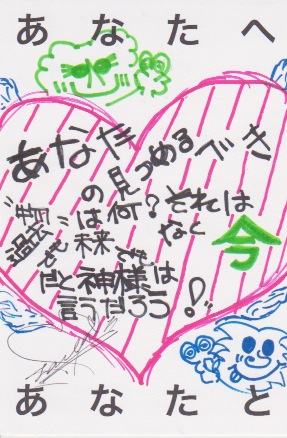 あなたへ
あなたの見つめるべき
“物”は何?それは
過去でも未来でもなく今
だと神様は
言うだろう!
あなたと